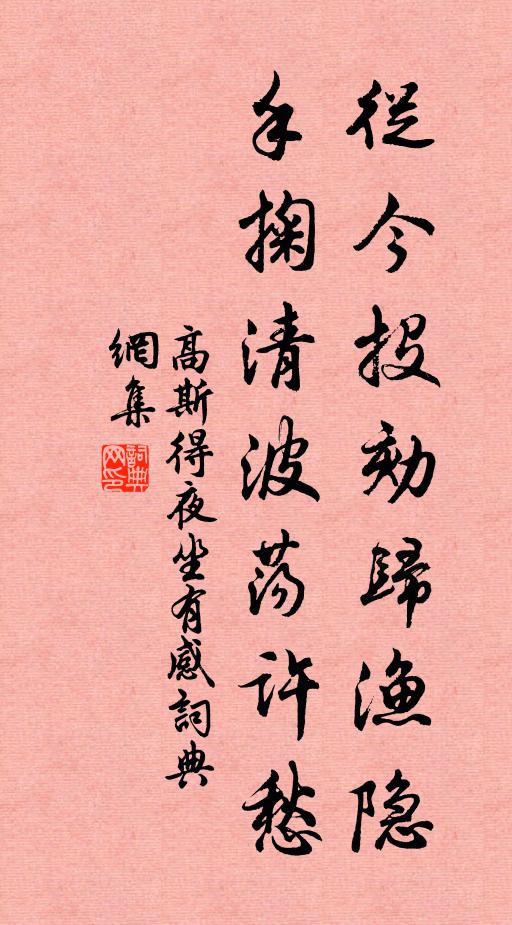 從今投劾歸漁隐
手掬清波荡許愁
高斯得夜坐有感詞典
網集
詞典
网印